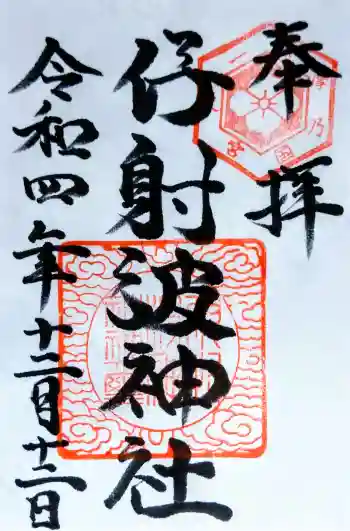 奉拝
伊射波神社
令和四年十二月十二日